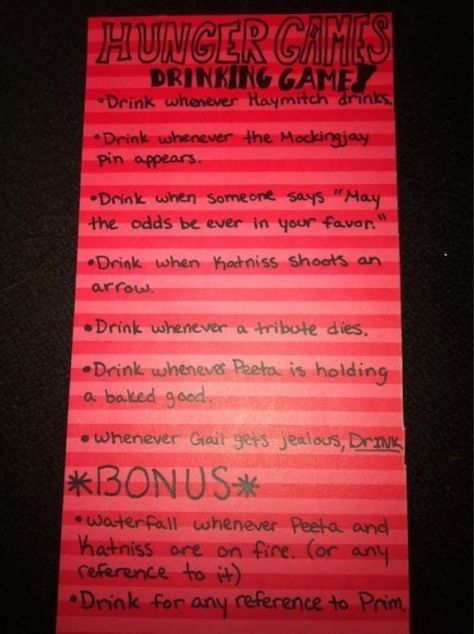 HUNGER GAMES
DRINKING GAME!
•Drink whenever Haymitch drinks.
•Drink whenever the Mockingjay
pin appears.
•Drink when someone says "May
the odds be ever in your favor."
•Drink when Katniss shoots an
arrow.
•Drink whenever a tribute dies.
•Drink whenever Peeta is holding
a baked good.
•whenever Gail gets jealous, DRINK
*BONUS*
•waterfall whenever Peeta and
Katniss are on fire. (or any
reference to it)
•Drink for any reference to Prim.